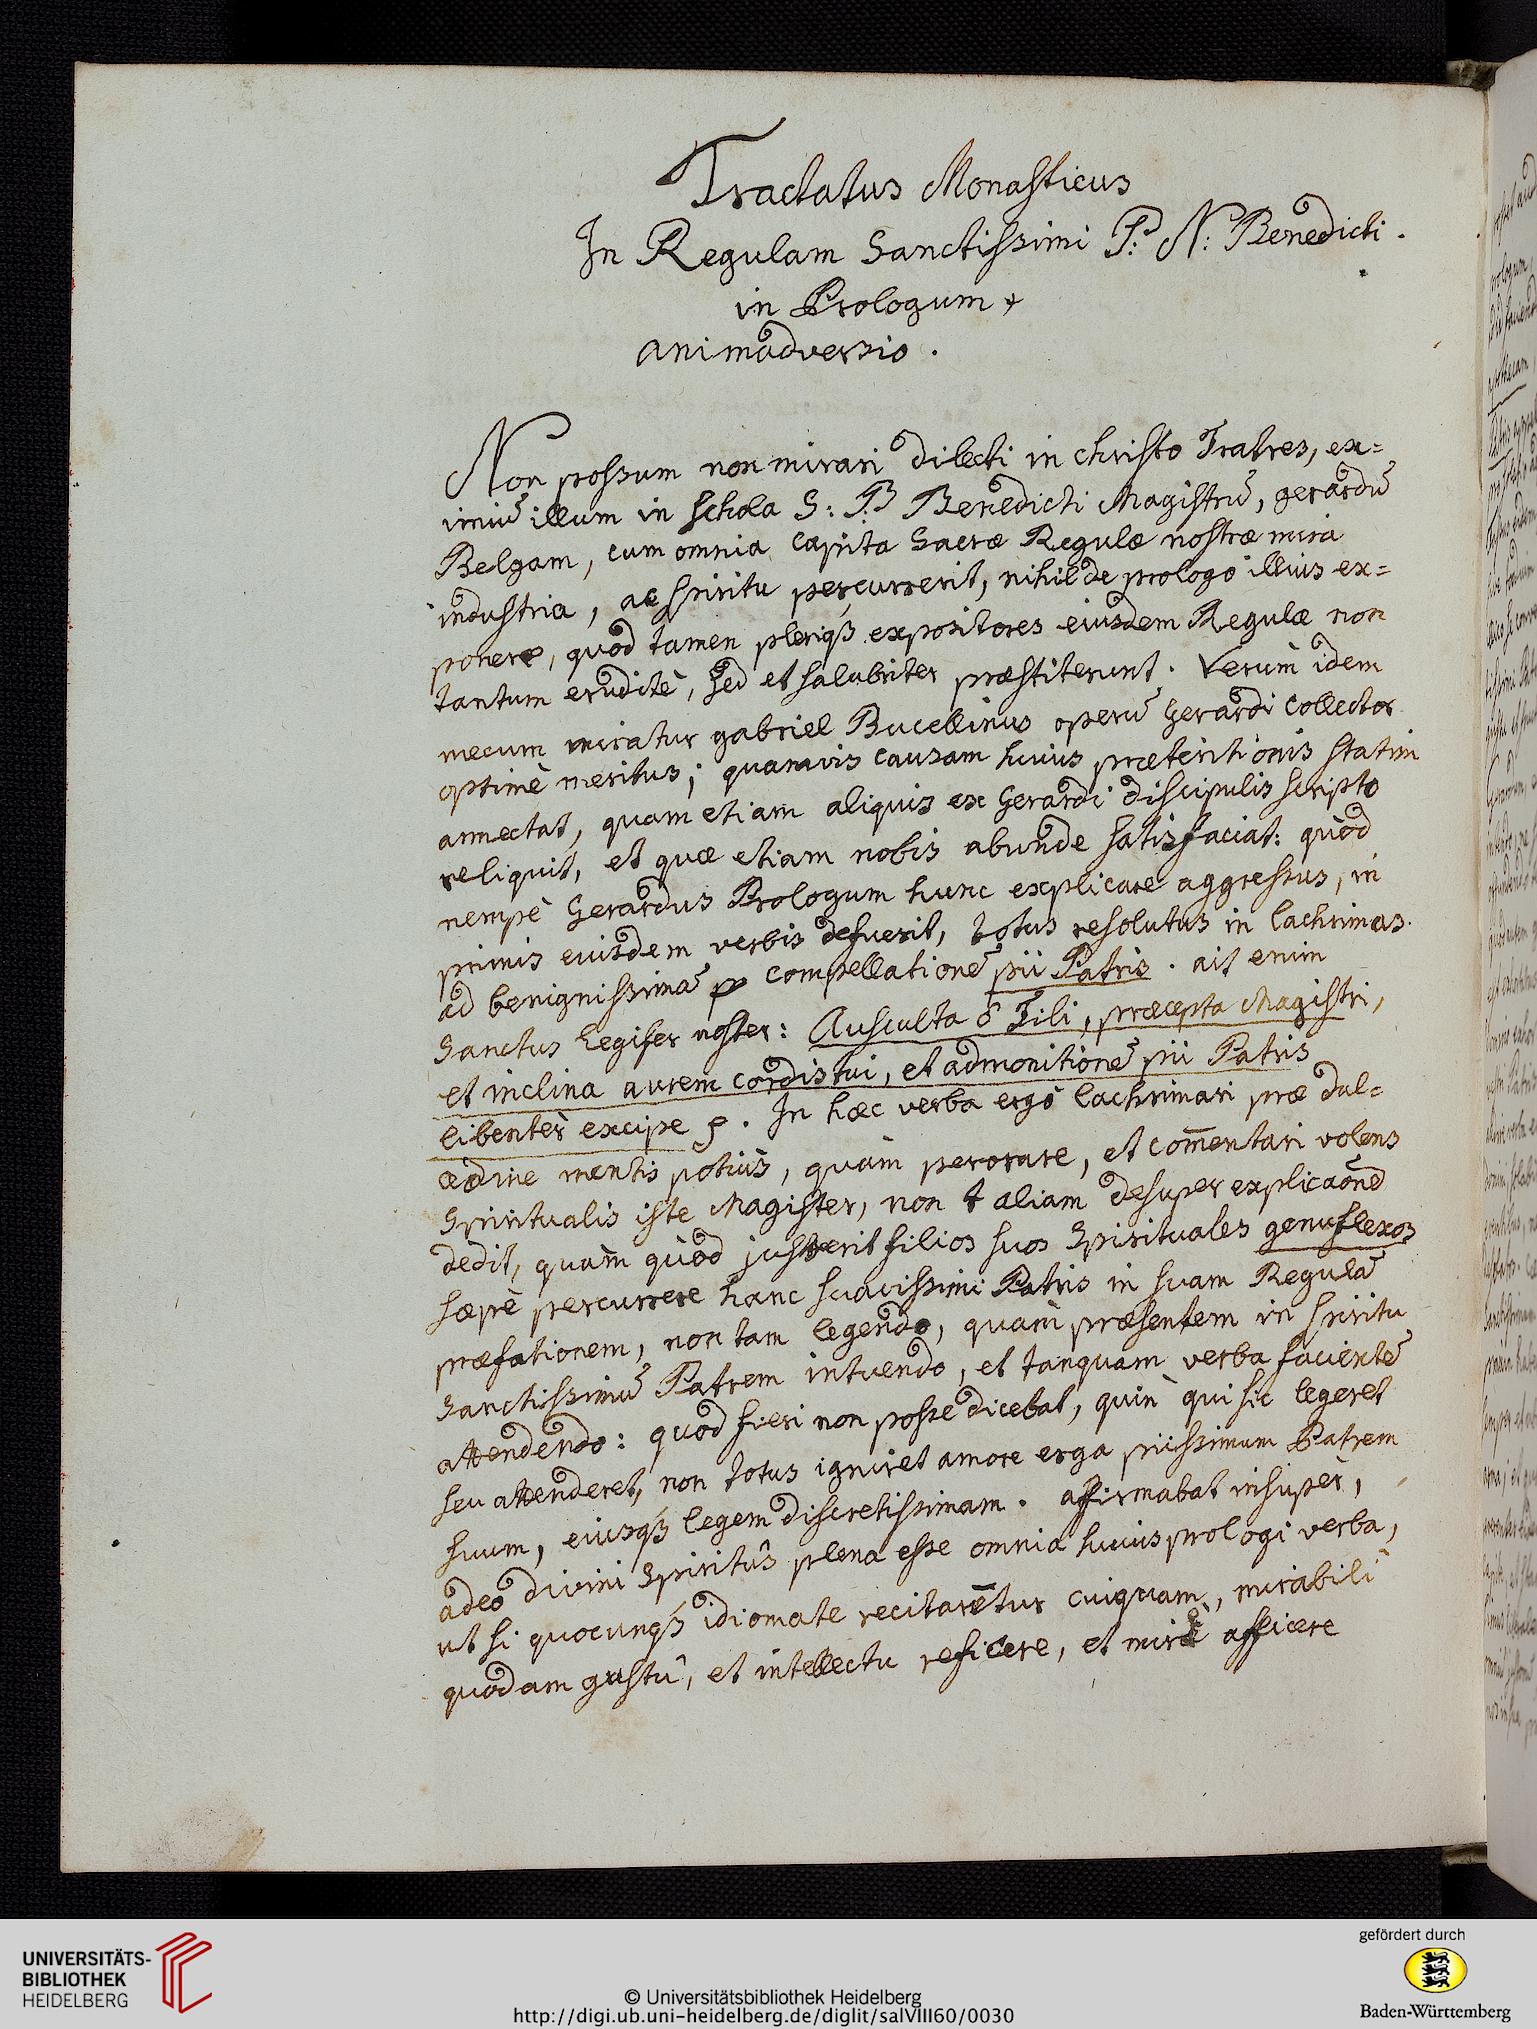 Tractatus Monasticus
In Regulam Sanctissimi P: N: Benedicti.
in Prologum
animadversio.
Non possum non mirari dilecti in christo Fratres, ex=
imiū illum in schola S: P Benedicti Magistrū, gerardū
Belgam, cum omnia capita Sacræ Regulæ nostræ mira
industria, ac spiritu percurrerit, nihil de prologo illius ex=
ponere, quod tamen pleriqȝ expositores eiusdem Regulæ non
tantum eruditè, sed et salubriter præstiterunt. Verùm idem
mecum miratur gabriel Bucellinus operū Gerardi Collector
optimè meritus; quamvis causam huius præteritionis statim
annectat, quam etiam aliquis ex Gerardi discipulis scripto
reliquit, et quæ etiam nobis abunde satisfaciat: quòd
nempè Gerardus Prologum hunc explicare aggressus, in
primis eiusdem verbis defuerit, totus resolutus in lachrimas.
ad benignissimā compellationē pii Patris. ait enim
Sanctus Legifer noster: Ausculta ô Fili, præcepta Magistri,
et inclina aurem cordis tui, et admonitionē pii Patris
libentèr excipe. In hæc verba ergò lachrimari præ dul=
cedine mentis potiùs, quàm perorare, et com̄entari volens
Spiritualis iste Magister, non aliam desuper explicaōnē
dedit, quàm quòd jusserit filios suos Spirituales genuflexos
sæpè percurrere hanc suavissimi Patris in suam Regulā
præfationem, non tam legendo, quàm præsentem in spiritu
Sanctissimū Patrem intuendo, et tanquam verba facientē
attendendo: quod fieri non posse dicebat, quin qui sic legeret
seu attenderet, non totus igniret amore erga piissimum Patrem
suum, eiusqȝ legem discretissimam. affirmabat insupèr,
adeò divini Spiritûs plena esse omnia huius prologi verba,
ut si quocunqȝ idiomate recitarētur cuiquam, mirabili
quodam gustu, et intellectu reficere, et mirè afficere
UNIVERSITÄTS-
BIBLIOTHEK
HEIDELBERG
© Universitätsbibliothek Heidelberg
http://digi.ub.uni-heidelberg.de/diglit/salVIII60/0030
gefördert durch
Baden-Württemberg